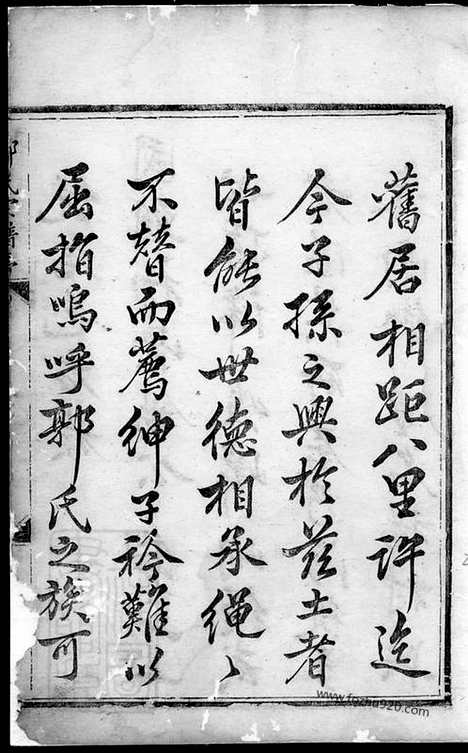 舊居相距八里許迄
今子孫之興於茲土者
皆能以世德相承繩〻
不替而薦紳子衿難以
屈指嗚呼郭氏之族可
www.fgzhu920.com